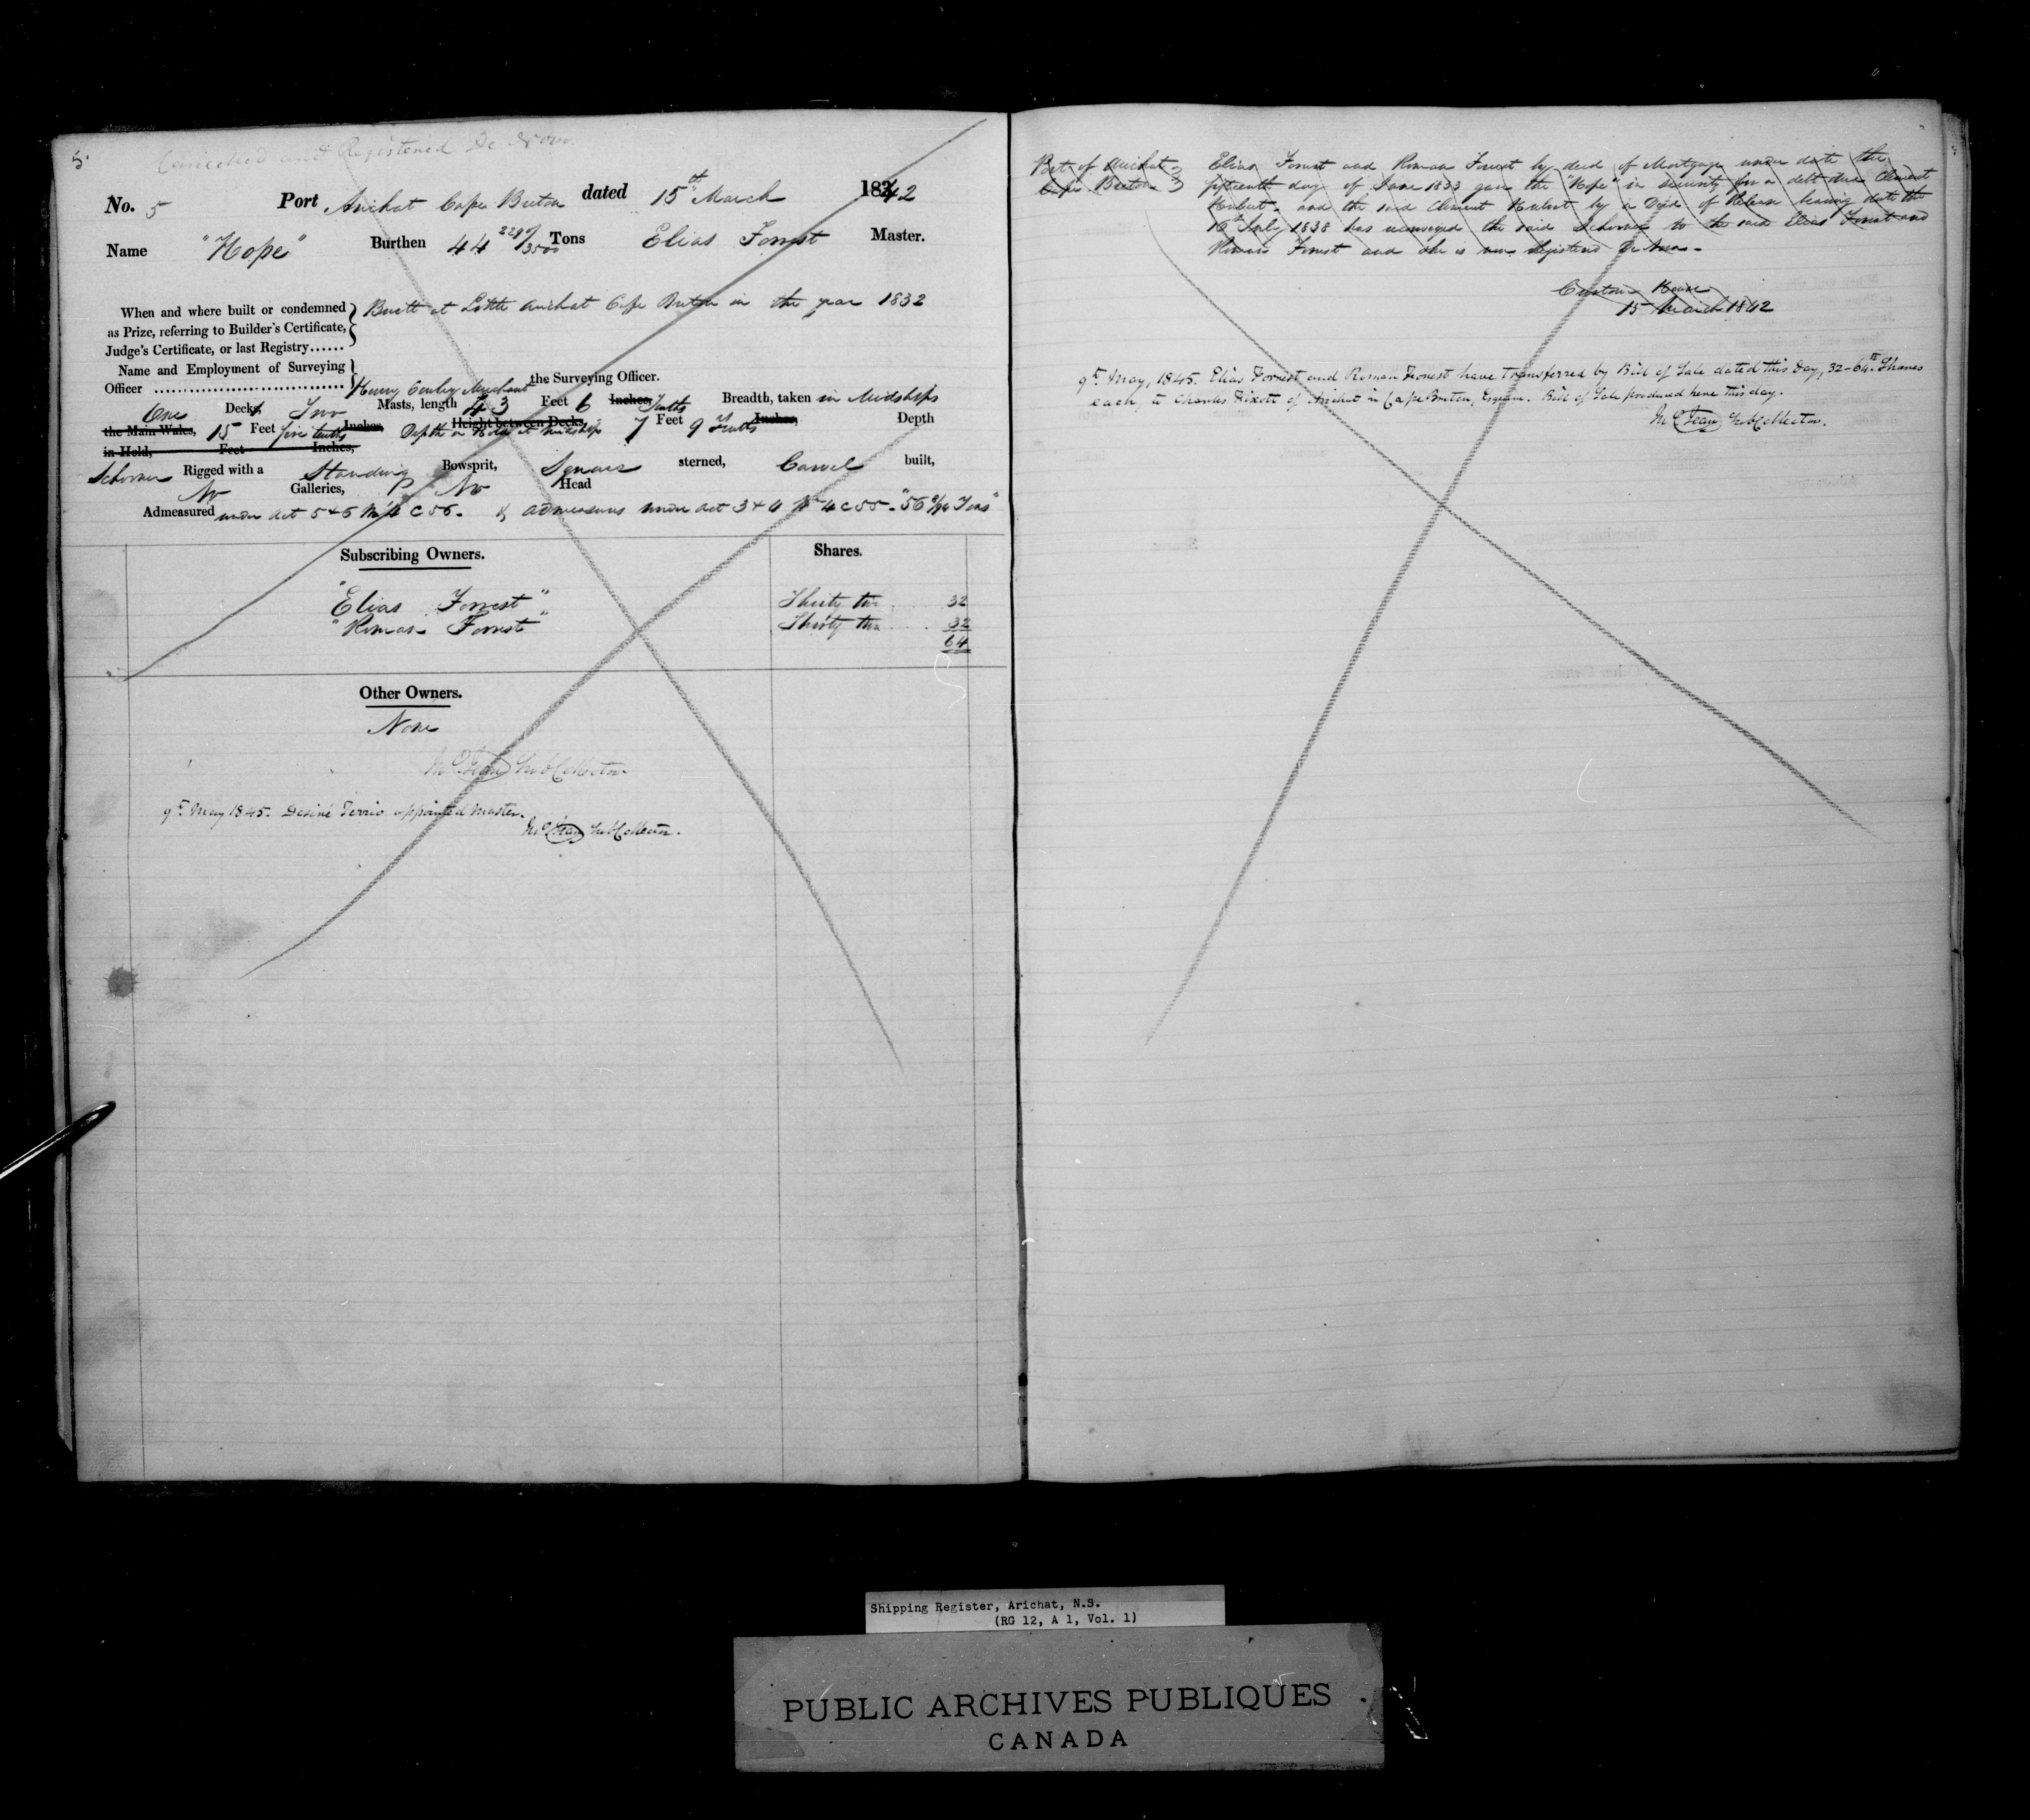 5.
Cancelled and Registered De Novo
No. 5 Port Arichat Cape Breton dated 15th March 1842
Name "Hope" Burthen 44 2297/3500 Tons Elias Forrest Master.
When and where built or condemned
as Prize, referring to Builder's Certificate,
Judge's Certificate, or last Registry......
Built at Little Arichat Cape Breton in the year 1832
Name and Employment of Surveying
Officer ................................ Henry Merchant the Surveying Officer.
One Decks, Two Masts, length 43 Feet 6 Inches, Tenths Breadth, taken in Midships
the Main Wales, 15 Feet five tenths Inches, Height between Decks, Depth in Hold at Midships 7 Feet 9 Tenths Inches, Depth
in Hold, Feet Inches,
Schooner Rigged with a Standing Bowsprit, Square sterned, Carvel built,
No Galleries, No Head
Admeasured under Act 5 & 6 W 4 C 56. & admeasures under Act 3 & 4 W 4 C 55. "56 Tons"
Subscribing Owners. Shares.
"Elias Forrest" Thirty two 32
"Roman Forrest" Thirty two 32
64
Other Owners.
None
Sub Collector.
9th May 1845. Desiré Terrio appointed Master.
Sub Collector.
Port of Arichat
Cape Breton
Elias Forrest and Roman Forrest by deed of Mortgage under date the
fifteenth day of June 1833 gave the "Hope" in security for a debt due Clement
Hubert. and the said Clement Hubert by a Deed of Release bearing date the
16th July 1838 has reconveyed the said Schooner to the said Elias Forrest and
Roman Forrest and she is now Registered De Novo.
Custom House
15 March 1842
9th May, 1845. Elias Forrest and Roman Forrest have transferred by Bill of Sale dated this Day, 32-64th Shares
each, to Charles of Arichat in Cape Breton, Esquire. Bill of Sale produced here this day.
Sub Collector.
Shipping Register, Arichat, N.S.
(RG 12, A 1, Vol. 1)
PUBLIC ARCHIVES PUBLIQUES
CANADA